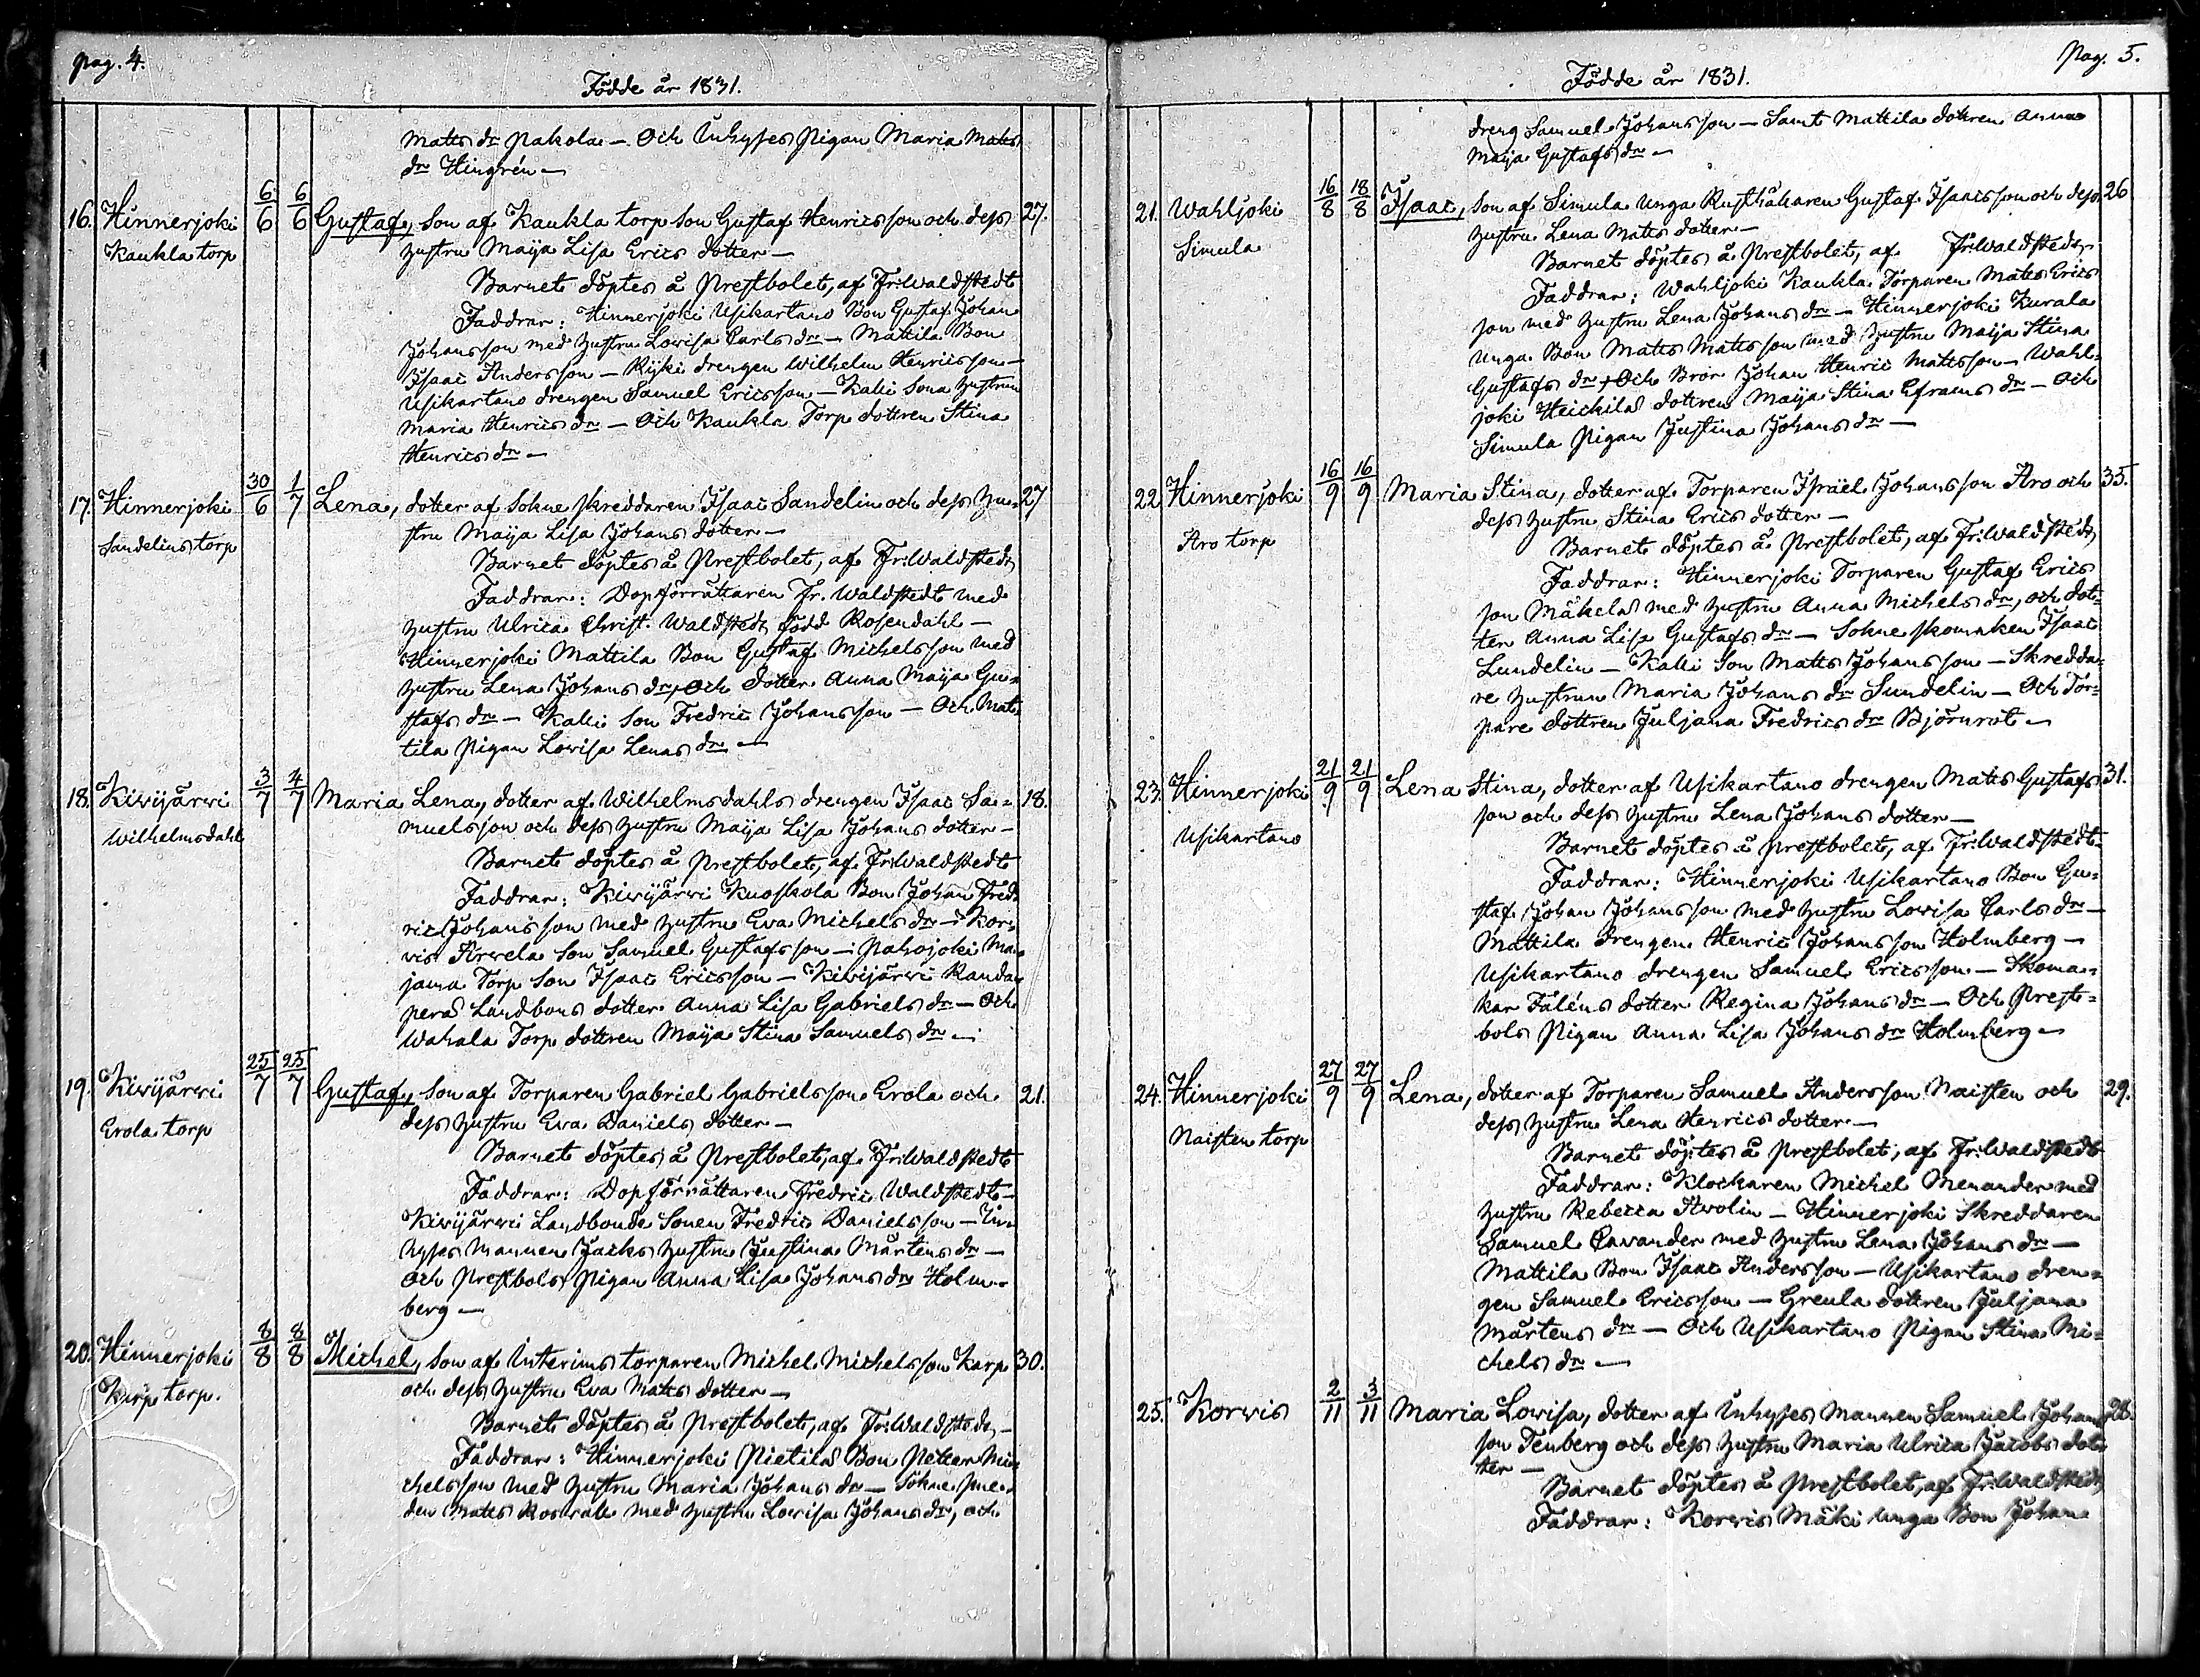 pag. 4.
Födde år 1831.
Matts dr Pakola — Och Inhyses Pigan Maria Matts
dr Hingrén —
16. Hinnerjoki 6/6 6/6 Gustaf, Son af Kaukla torp Son Gustaf Henricsson och dess 27.
Kaukla torp hustru Maija Lisa Erics dotter —
Barnet döptes å Prestbolet, af Fr: Waldstedt
Faddrar: Hinnerjoki Usikartano Bon Gustaf Johan
Johansson med hustru Lovisa Carls dr — Mattila Bon
Isaac Andersson — Ryki drengen Wilhelm Henricsson —
Usikartano drengen Samuel Ericsson — Kalli Sona hustrun
Maria Henrics dr — Och Kaukla Torp dottren Stina
Henrics dr —
17. Hinnerjoki 30/6 1/7 Lena, dotter af Sokne skreddaren Isaac Sandelin och dess hu- 27
Sandelins torp stru Maija Lisa Johans dotter —
Barnet döptes å Prestbolet, af Fr: Waldstedt
Faddrar: Dopförrättaren Fr. Waldstedt med
hustru Ulrica Christ. Waldstedt född Rosendahl —
Hinnerjoki Mattila Bon Gustaf Michelsson med
hustru Lena Johans dr, Och dotter Anna Maija Gu-
stafs dr — Kalli Son Fredric Johansson — Och Mat-
tila Pigan Lovisa Lenas dr —
18. Kivijärvi 3/7 4/7 Maria Lena, dotter af Wilhelmsdahls drengen Isaac Sa- 18.
Wilhelmsdahl muelsson och dess hustru Maija Lisa Johans dotter —
Barnet döptes å Prestbolet, af Fr: Waldstedt
Faddrar: Kivijärvi Kuoskola Bon Johan Fred-
ric Johansson med hustru Eva Michels dr — Kor-
vis Arvela Son Samuel Gustafsson — Pahojoki Ma-
jama Torp Son Isaac Ericsson — Kivijärvi Randa-
perä Landbons dotter Anna Lisa Gabriels dr — Och
Wahala Torp dottren Maija Stina Samuels dr —
19. Kivijärvi 25/7 25/7 Gustaf, Son af Torparen Gabriel Gabrielsson Erola och 21.
Erola torp dess hustru Eva Daniels dotter —
Barnet döptes å Prestbolet, af Fr: Waldstedt
Faddrar: Dopförrättaren Fredric Waldstedt —
Kivijärvi Landbonde Sonen Fredric Danielsson — In-
hyses Mannen Jacks hustru Justina Mårtens dr —
Och Prestbols Pigan Anna Lisa Johans dr Holm-
berg —
20. Hinnerjoki 8/8 8/8 Michel, Son af Interims torparen Michel Michelsson Karp 30.
Karp torp. och dess hustru Eva Matts dotter —
Barnet döptes å Prestbolet, af Fr: Waldstedt —
Faddrar: Hinnerjoki Pietilä Bon Petter Mi-
chelsson med hustru Maria Johans dr — Sokne sme-
den Matts Rosvall med hustru Lovisa Johans dr, och
Pag. 5.
Födde år 1831.
dreng Samuel Johansson — Samt Mattila dottren Anna
Maija Gustafs dr —
21. Wahljoki 16/8 18/8 Isaac, Son af Simula Unga Rusthållaren Gustaf Isaacsson och dess 26
Simula hustru Lena Matts dotter —
Barnet döptes å Prestbolet, af Fr: Waldstedt
Faddrar: Wahljoki Kaukla Torparen Matts Erics
son med hustru Lena Johans dr — Hinnerjoki Kurala
Unga Bon Matts Mattsson med hustru Maija Stina
Gustafs dr, Och Bror Johan Henric Mattsson — Wahl-
joki Heickilä dottren Maija Stina Eframs dr — Och
Simula Pigan Justina Johans dr —
22. Hinnerjoki 16/9 16/9 Maria Stina, dotter af Torparen Israël Johansson Aro och 35.
Aro torp dess hustru Stina Erics dotter —
Barnet döptes å Prestbolet, af Fr: Waldstedt
Faddrar: Hinnerjoki Torparen Gustaf Erics
son Mäkelä med hustru Anna Michels dr, och dot-
ter Anna Lisa Gustafs dr — Sokne skomaken Isaac
Lundelin — Kalli Son Matts Johansson — Skredda-
re hustrun Maria Johans dr Sundelin — Och Tor-
pare dottren Juljana Fredrics dr Björnrot —
23. Hinnerjoki 21/9 21/9 Lena Stina, dotter af Usikartano drengen Matts Gustafs 31.
Usikartano son och dess hustru Lena Johans dotter —
Barnet döptes å Prestbolet, af Fr: Waldstedt
Faddrar: Hinnerjoki Usikartano Bon Gu-
staf Johan Johansson med hustru Lovisa Carls dr —
Mattila drengen Henric Johansson Holmberg —
Usikartano drengen Samuel Ericsson — Skoma-
kar Faléns dotter Regina Johans dr — Och Prest-
bols Pigan Anna Lisa Johans dr Holmberg —
24. Hinnerjoki 27/9 27/9 Lena, dotter af Torparen Samuel Andersson Naisten och 29.
Naisten torp dess hustru Lena Henrics dotter —
Barnet döptes å Prestbolet, af Fr: Waldstedt
Faddrar: Klockaren Michel Menander med
hustru Rebecca Avolin — Hinnerjoki Skreddaren
Samuel Cavander med hustru Lena Johans dr —
Mattila Bon Isaac Andersson — Usikartano dren-
gen Samuel Ericsson — Greula dottren Juljana
Mårtens dr — Och Usikartano Pigan Stina Mi-
chels dr —
25. Korvis 2/11 3/11 Maria Lovisa, dotter af Inhyses Mannen Samuel Johans 28.
son Tenberg och dess hustru Maria Ulrica Jacobs dot-
ter —
Barnet döptes å Prestbolet, af Fr: Waldstedt
Faddrar: Korvis Mäki Unga Bon Johan